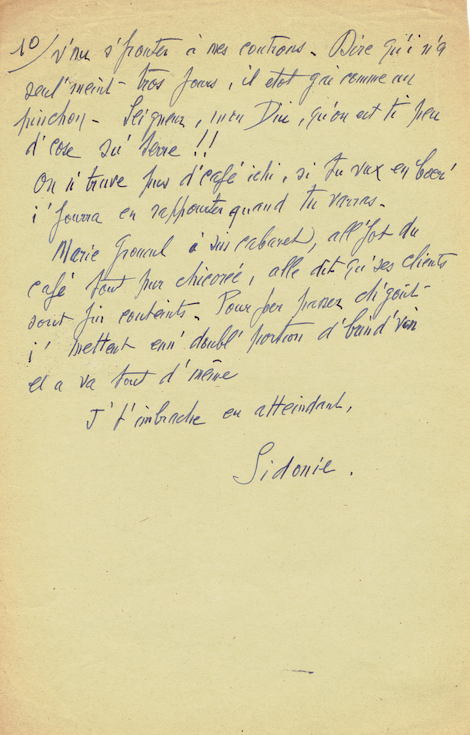 10/ v'nu s'frouter à mes coutrons. Dire qu'i n'a
seul'meint tros jours, il étot gai comme un
pinchon. Seigneur, mon Diu, qu'on est ti peu
d'cose su' terre !!
On n'truve pus d'café ichi, si tu vux en boér'
i' faurra en rapporter quand tu varras.
Marie Grouaul à sin cabaret, all'fot du
café tout pur chicorée, alle dit qu'ses clients
sont fin conteints. Pour per passer ch'goût
i' mettent enn' doubl' portion d'brind'vin
et a va tout d'même
J't'imbrache en atteindant,
Sidonie.